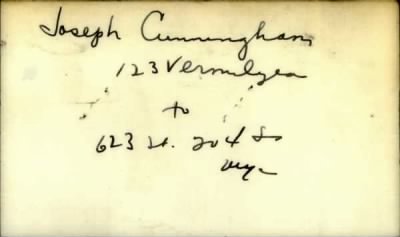 Joseph Cunningham
123 Vermilyea
to
623 W. 204 St
nyc